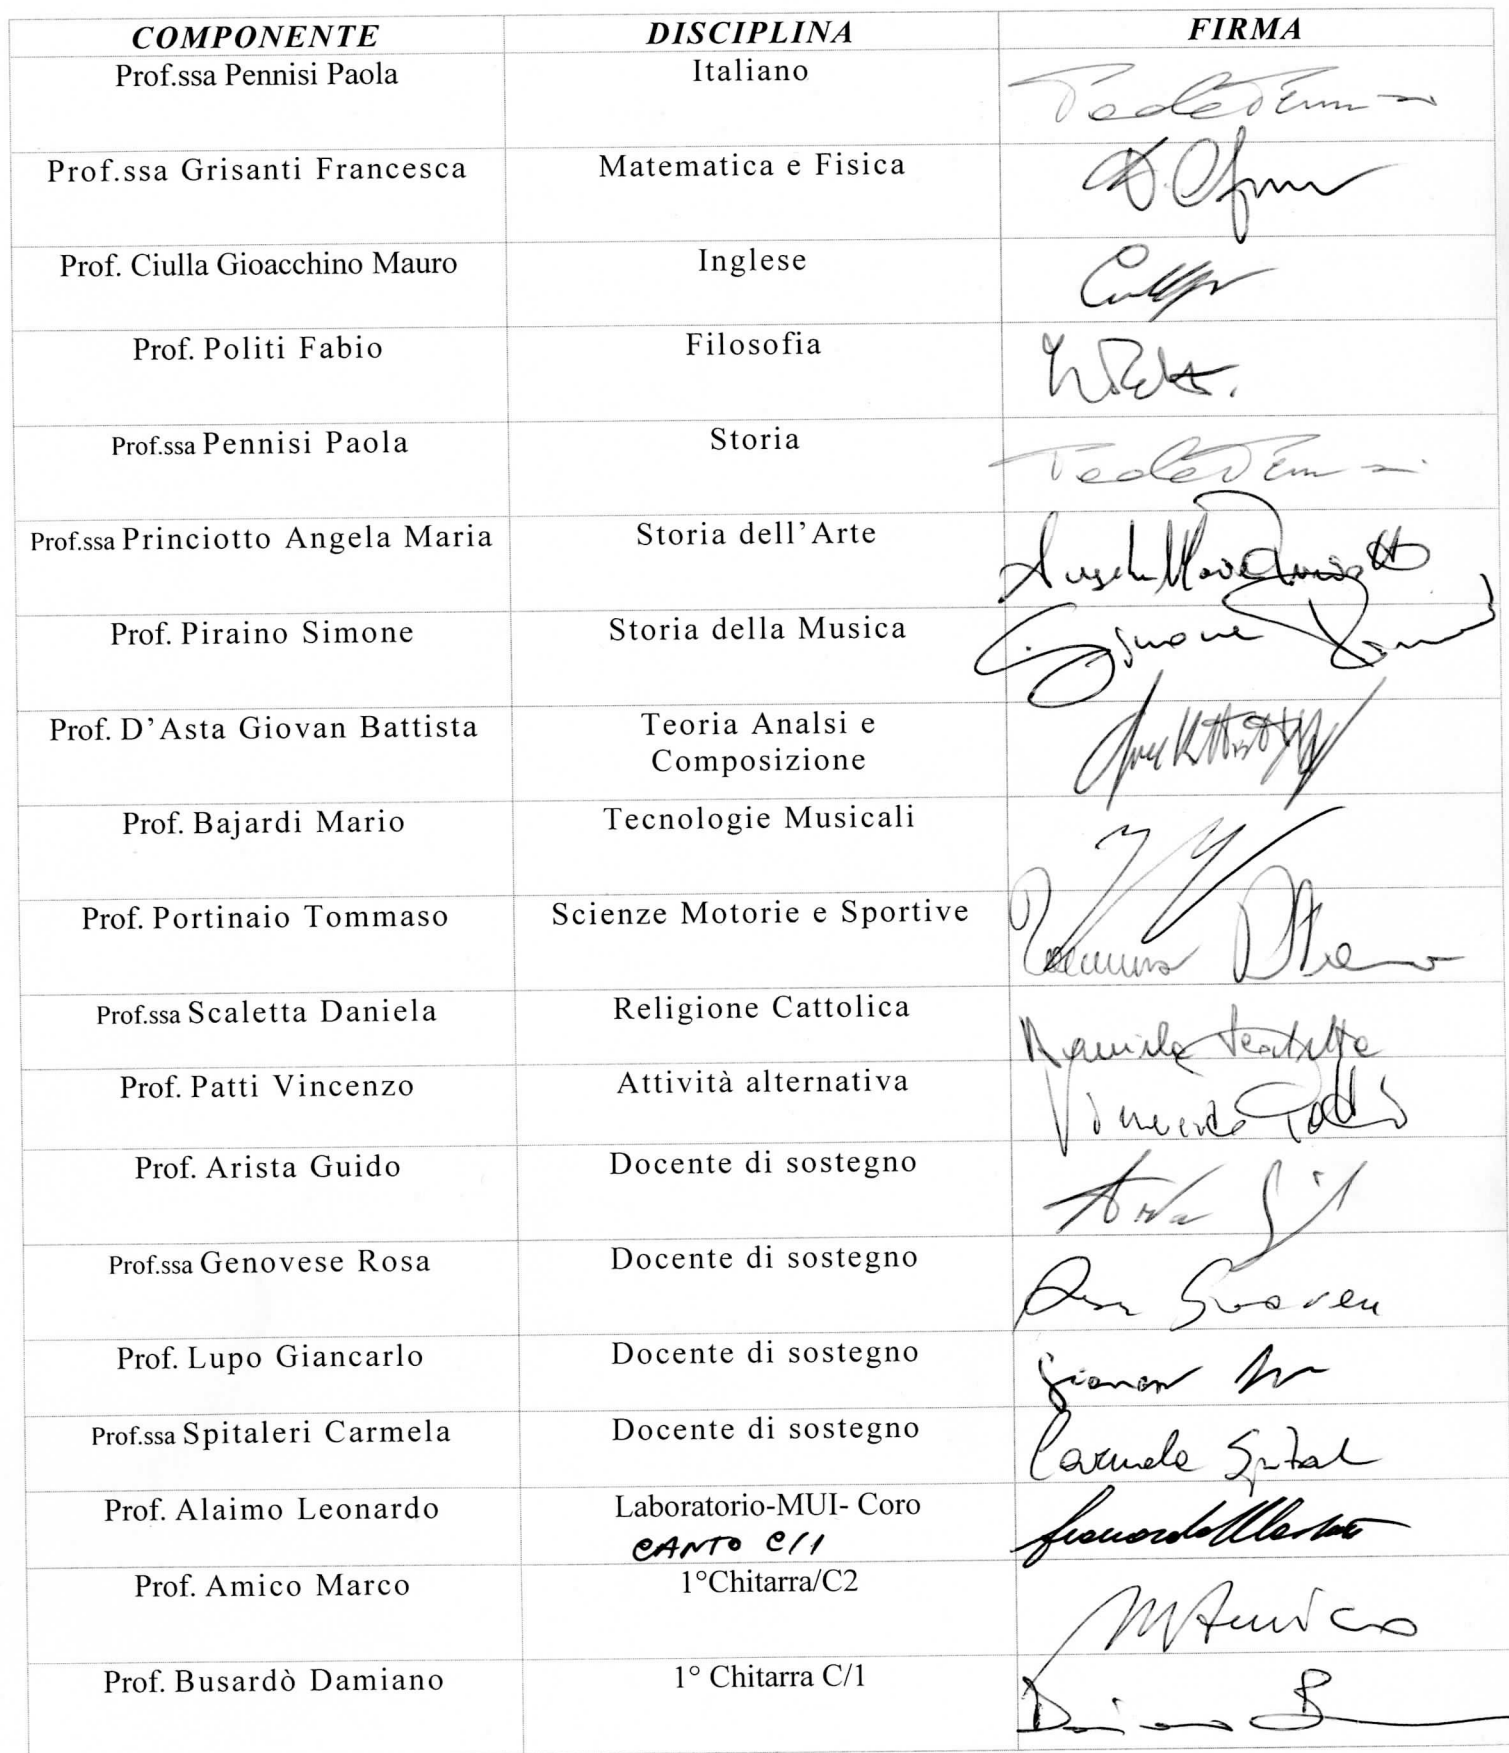 COMPONENTE DISCIPLINA FIRMA
Prof.ssa Pennisi Paola Italiano
Prof.ssa Grisanti Francesca Matematica e Fisica
Prof. Ciulla Gioacchino Mauro Inglese
Prof. Politi Fabio Filosofia
Prof.ssa Pennisi Paola Storia
Prof.ssa Princiotto Angela Maria Storia dell'Arte
Prof. Piraino Simone Storia della Musica Simone
Prof. D'Asta Giovan Battista Teoria Analsi e
Composizione
Prof. Bajardi Mario Tecnologie Musicali
Prof. Portinaio Tommaso Scienze Motorie e Sportive
Prof.ssa Scaletta Daniela Religione Cattolica
Prof. Patti Vincenzo Attività alternativa Vincenzo Patti
Prof. Arista Guido Docente di sostegno
Prof.ssa Genovese Rosa Docente di sostegno
Prof. Lupo Giancarlo Docente di sostegno
Prof.ssa Spitaleri Carmela Docente di sostegno Carmela
Prof. Alaimo Leonardo Laboratorio-MUI- Coro
CANTO C/1
Prof. Amico Marco 1°Chitarra/C2 M Amico
Prof. Busardò Damiano 1° Chitarra C/1